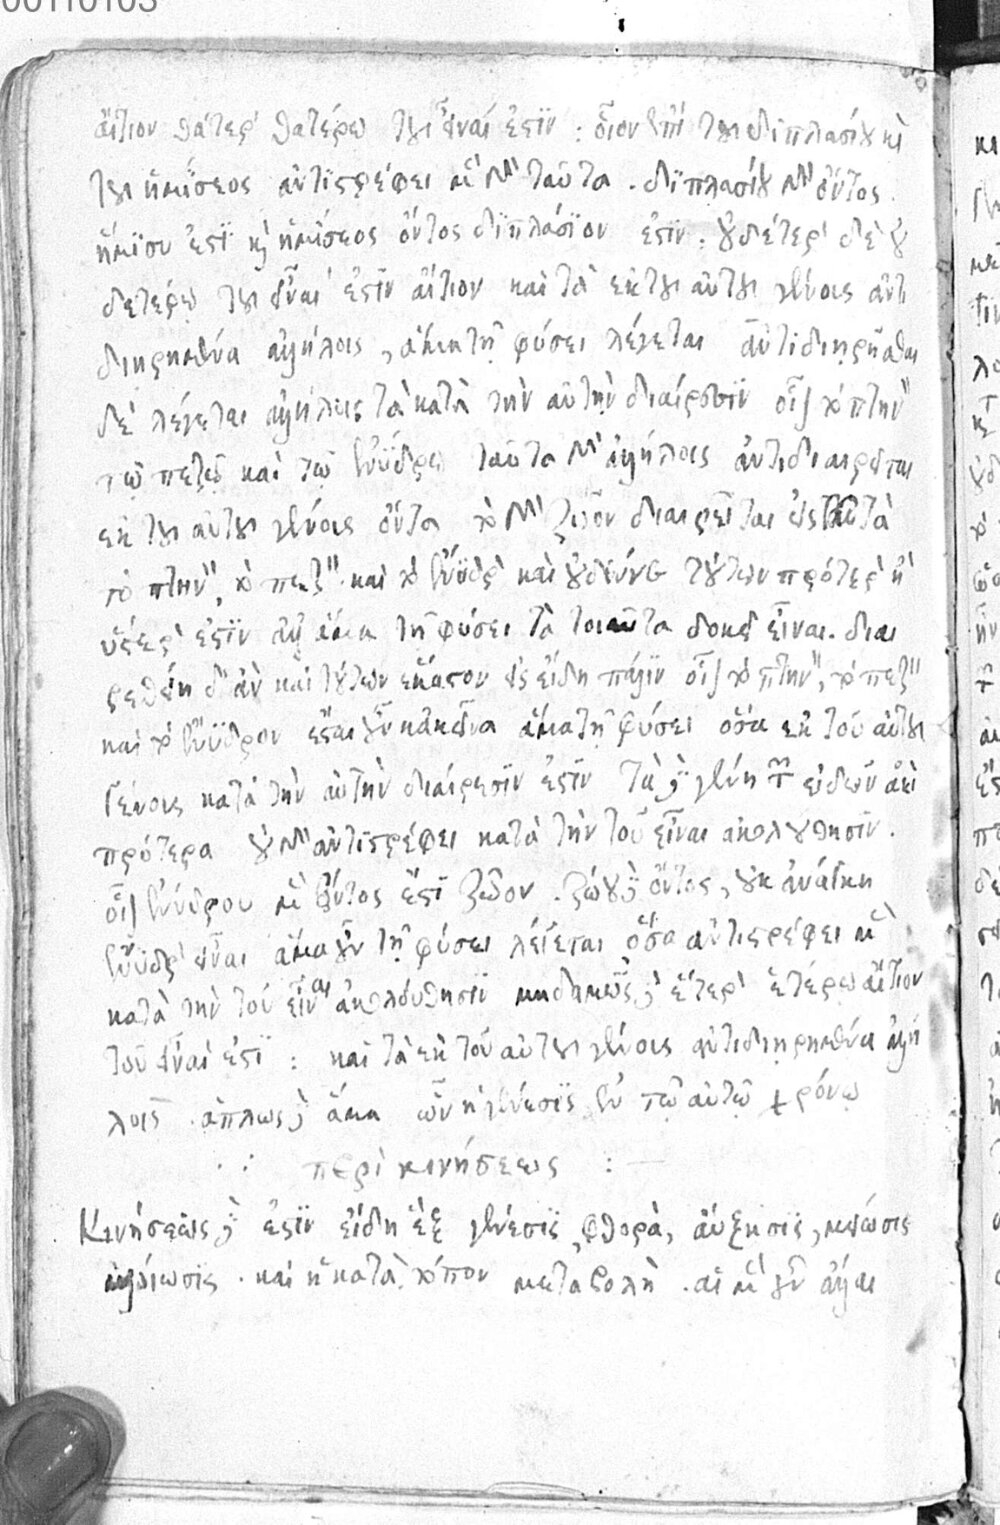 00110103
αἴτιον θάτερον θατέρῳ τοῦ εἶναί ἐστιν : οἷον ἐπὶ τοῦ διπλασίου καὶ
τοῦ ἡμίσεος ἀντιστρέφει μὲν ταῦτα . διπλασίου μὲν ὄντος
ἥμισύ ἐστι καὶ ἡμίσεος ὄντος διπλάσιον ἐστιν . οὐδέτερον δὲ οὐ
δετέρῳ τοῦ εἶναί ἐστιν αἴτιον καὶ τὰ ἐκ τοῦ αὐτοῦ γένους ἀντι
διῃρημένα ἀλλήλοις , ἅμα τῇ φύσει λέγεται ἀντιδιῃρῆσθαι
δὲ λέγεται ἀλλήλοις τὰ κατὰ τὴν αὐτὴν διαίρεσιν οἷον τὸ πτηνὸν
τῷ πεζῷ καὶ τῷ ἐνύδρῳ ταῦτα μὲν ἀλλήλοις ἀντιδιαιρεῖται
ἐκ τοῦ αὐτοῦ γένους ὄντα τὸ μὲν ζῷον διαιρεῖται εἰς ταῦτα
τὸ πτηνὸν , τὸ πεζὸν . καὶ τὸ ἔνυδρον καὶ οὐδέν γε τούτων πρότερον ἢ
ὕστερόν ἐστιν ἀλλ' ἅμα τῇ φύσει τὰ τοιαῦτα δοκεῖ εἶναι . διαι
ρεθείη δ' ἂν καὶ τούτων ἕκαστον εἰς εἴδη πάλιν οἷον τὸ πτηνὸν , τὸ πεζὸν
καὶ τὸ ἔνυδρον ἔσται οὖν κἀκεῖνα ἅμα τῇ φύσει ὅσα ἐκ τοῦ αὐτοῦ
γένους κατὰ τὴν αὐτὴν διαίρεσίν ἐστιν τὰ δὲ γένη τῶν εἰδῶν ἀεὶ
πρότερα οὐ μὲν ἀντιστρέφει κατὰ τὴν τοῦ εἶναι ἀκολούθησιν .
οἷον ἐνύδρου μὲν ὄντος ἔστι ζῷον . ζῴου δὲ ὄντος , οὐκ ἀνάγκη
ἔνυδρον εἶναι ἅμα οὖν τῇ φύσει λέγεται ὅσα ἀντιστρέφει μὲν
κατὰ τὴν τοῦ εἶναι ἀκολούθησιν μηδαμῶς δὲ ἕτερον ἑτέρῳ αἴτιον
τοῦ εἶναί ἐστι : καὶ τὰ ἐκ τοῦ αὐτοῦ γένους ἀντιδιῃρημένα ἀλλή
λοις . ἁπλῶς δὲ ἅμα ὧν ἡ γένεσις ἐν τῷ αὐτῷ χρόνῳ
περὶ κινήσεως :
Κινήσεως δὲ ἐστιν εἴδη ἓξ γένεσις , φθορὰ , αὔξησις , μείωσις
ἀλλοίωσις . καὶ ἡ κατὰ τόπον μεταβολὴ . αἱ μὲν οὖν ἄλλαι